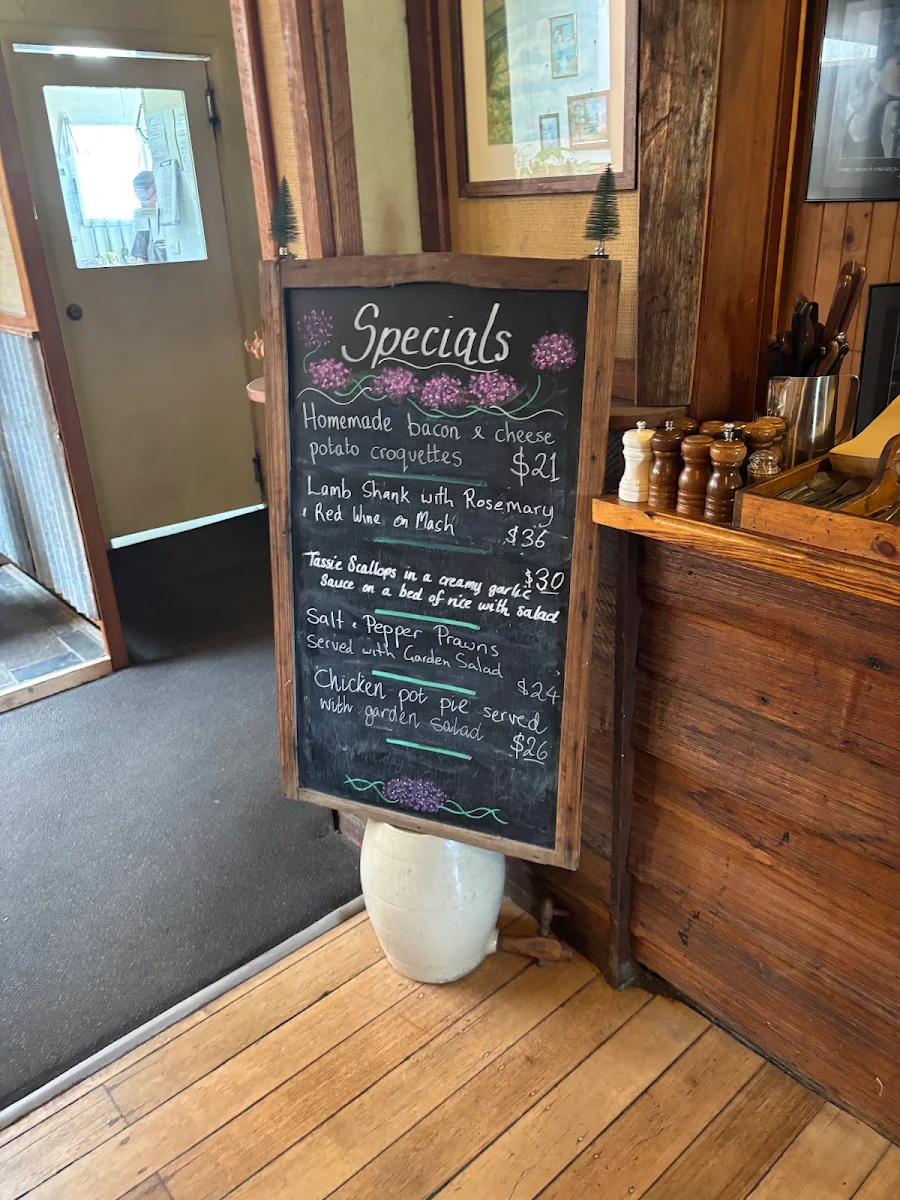 Specials
Homemade bacon & cheese
potato croquettes $21
Lamb Shank with Rosemary
& Red Wine on Mash $36
Tassie Scallops in a creamy garlic $30
Sauce on a bed of rice with salad
Salt & Pepper Prawns
Served with Garden Salad $24
Chicken pot pie served
with garden salad $26